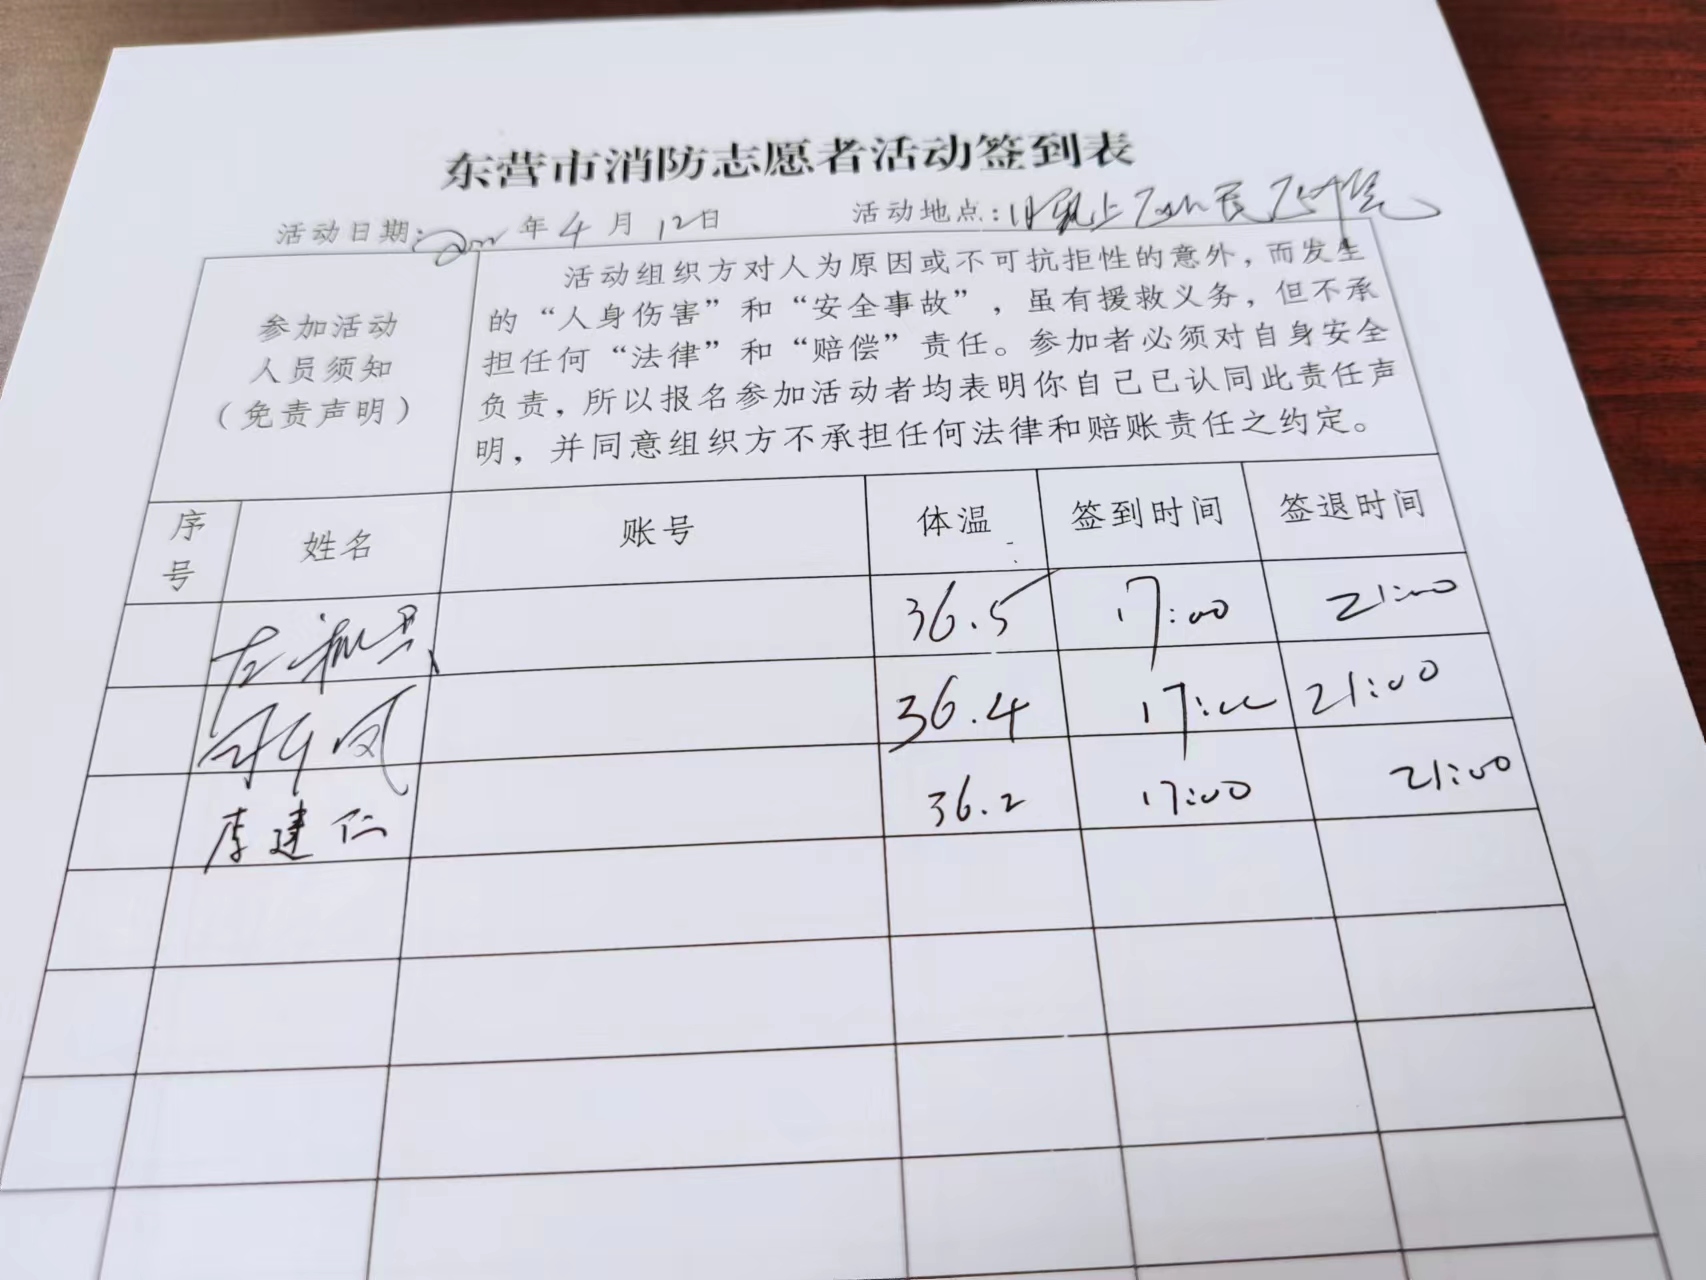 东营市消防志愿者活动签到表
活动日期: 年 4 月 12 日 活动地点:
参加活动
人员须知
(免责声明)
活动组织方对人为原因或不可抗拒性的意外,而发生
的“人身伤害”和“安全事故”,虽有援救义务,但不承
担任何“法律”和“赔偿”责任。参加者必须对自身安全
负责,所以报名参加活动者均表明你自己已认同此责任声
明,并同意组织方不承担任何法律和赔账责任之约定。
序号 姓名 账号 体温 签到时间 签退时间
36.5 17:00 21:00
36.4 17:00 21:00
李建仁 36.2 17:00 21:00